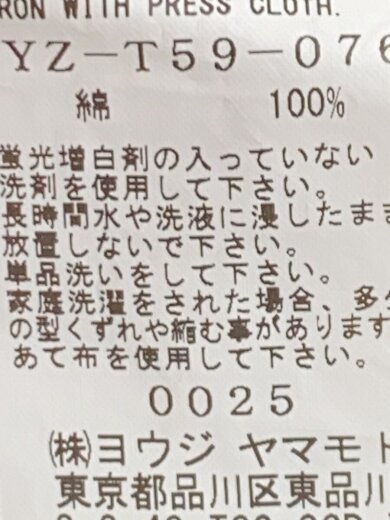 RON WITH PRESS CLOTH.
YZ-T59-076
綿 100%
蛍光増白剤の入っていない
洗剤を使用して下さい。
長時間水や洗液に浸したまま
放置しないで下さい。
単品洗いをして下さい。
家庭洗濯をされた場合、多少
の型くずれや縮む事があります
あて布を使用して下さい。
0025
(株)ヨウジ ヤマモト
東京都品川区東品川